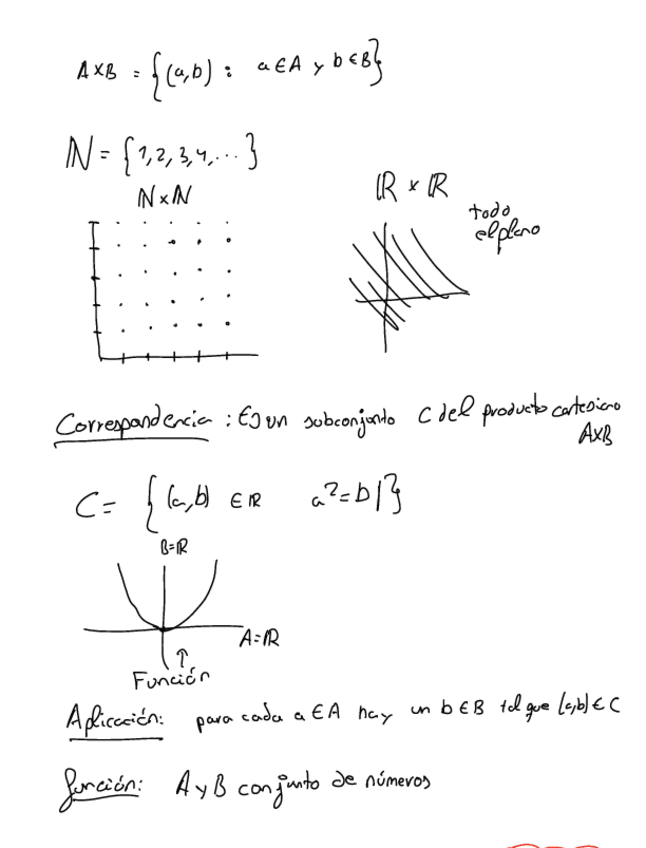 A×B = {(a,b) : a∈A y b∈B}
ℕ = {1,2,3,4,...}
ℕ×ℕ
ℝ×ℝ
todo
el plano
Correspondencia : Es un subconjunto C del producto cartesiano
A×B
C = {(a,b) ∈ℝ a²=b|}
B=ℝ
A=ℝ
↑
Función
Aplicación: para cada a∈A hay un b∈B tal que (a,b)∈C
función: A y B conjunto de números